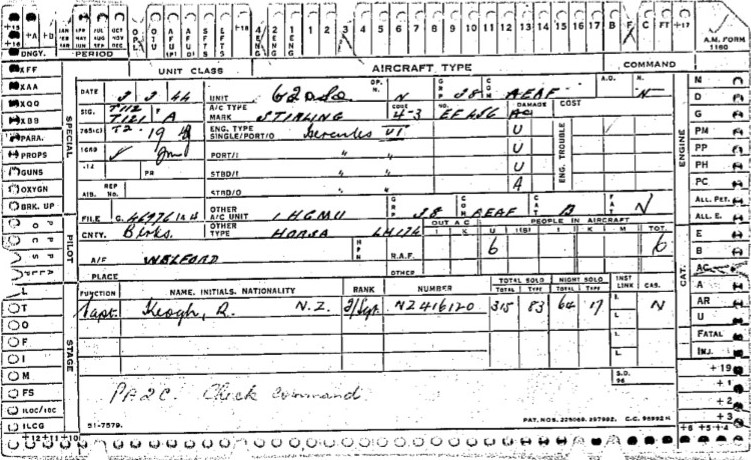 +15 +A +B JAN FEB MAR APR MAY JUN JUL AUG SEP OCT NOV DEC OPL OTU AFU (P) AFU SFTS EFTS +18 4 ENG 2 ENG 1 ENG 1 2 3 4 5 6 7 8 9 10 11 12 13 14 15 16 17 B F C FT +17
+16 PERIOD UNIT CLASS AIRCRAFT TYPE COMMAND A.M. FORM 1180
DNGY.
XFF
XAA
XQO
XBB
PARA.
PROPS
GUNS
OXYGN
BRK. UP
SPECIAL
DATE 3 3 44 UNIT OP. N. N GRP 38 COM AEAF A.O. H. N
SIG. T112 T121 P A A/C TYPE MARK STIRLING CODE 4-3 NO. EF456 DAMAGE AC COST
765(C) T2 ENG. TYPE SINGLE/PORT/O Hercules VI U
1669 ✓ PORT/I " " U
+14 PR STBD/I " " U
AIB. REP No. STBD/O " " A
ENG. TROUBLE
FILE C. OTHER A/C UNIT 1 HGMU GRP 38 COM AEAF CAT B FAT N
CNTY. Birks. OTHER TYPE HORSA OUT A C I K PEOPLE IN AIRCRAFT U I(S) I K M TOT.
A/F WELFORD R.A.F. 6 6
PLACE OTHER
PILOT
FUNCTION NAME. INITIALS. NATIONALITY RANK NUMBER TOTAL SOLO TOTAL TYPE NIGHT SOLO TOTAL TYPE INST LINK CAS.
Capt. Keogh, R. N.Z. F/Sgt NZ416120 315 83 64 17 N
STAGE
T
O
F
I
M
FS
ILOC/IOC
ILCG
S.D. 96
PA2C. Check command
51-7579. PAT. NOS.
+12 +11 +10
ENGINE
N
D
G
PM
PP
PH
PC
ALL. PET.
ALL. E.
CAT.
E
B
AC
A
AR
U
FATAL
INJ.
+19
+1
+2
+3
+6 +5 +4